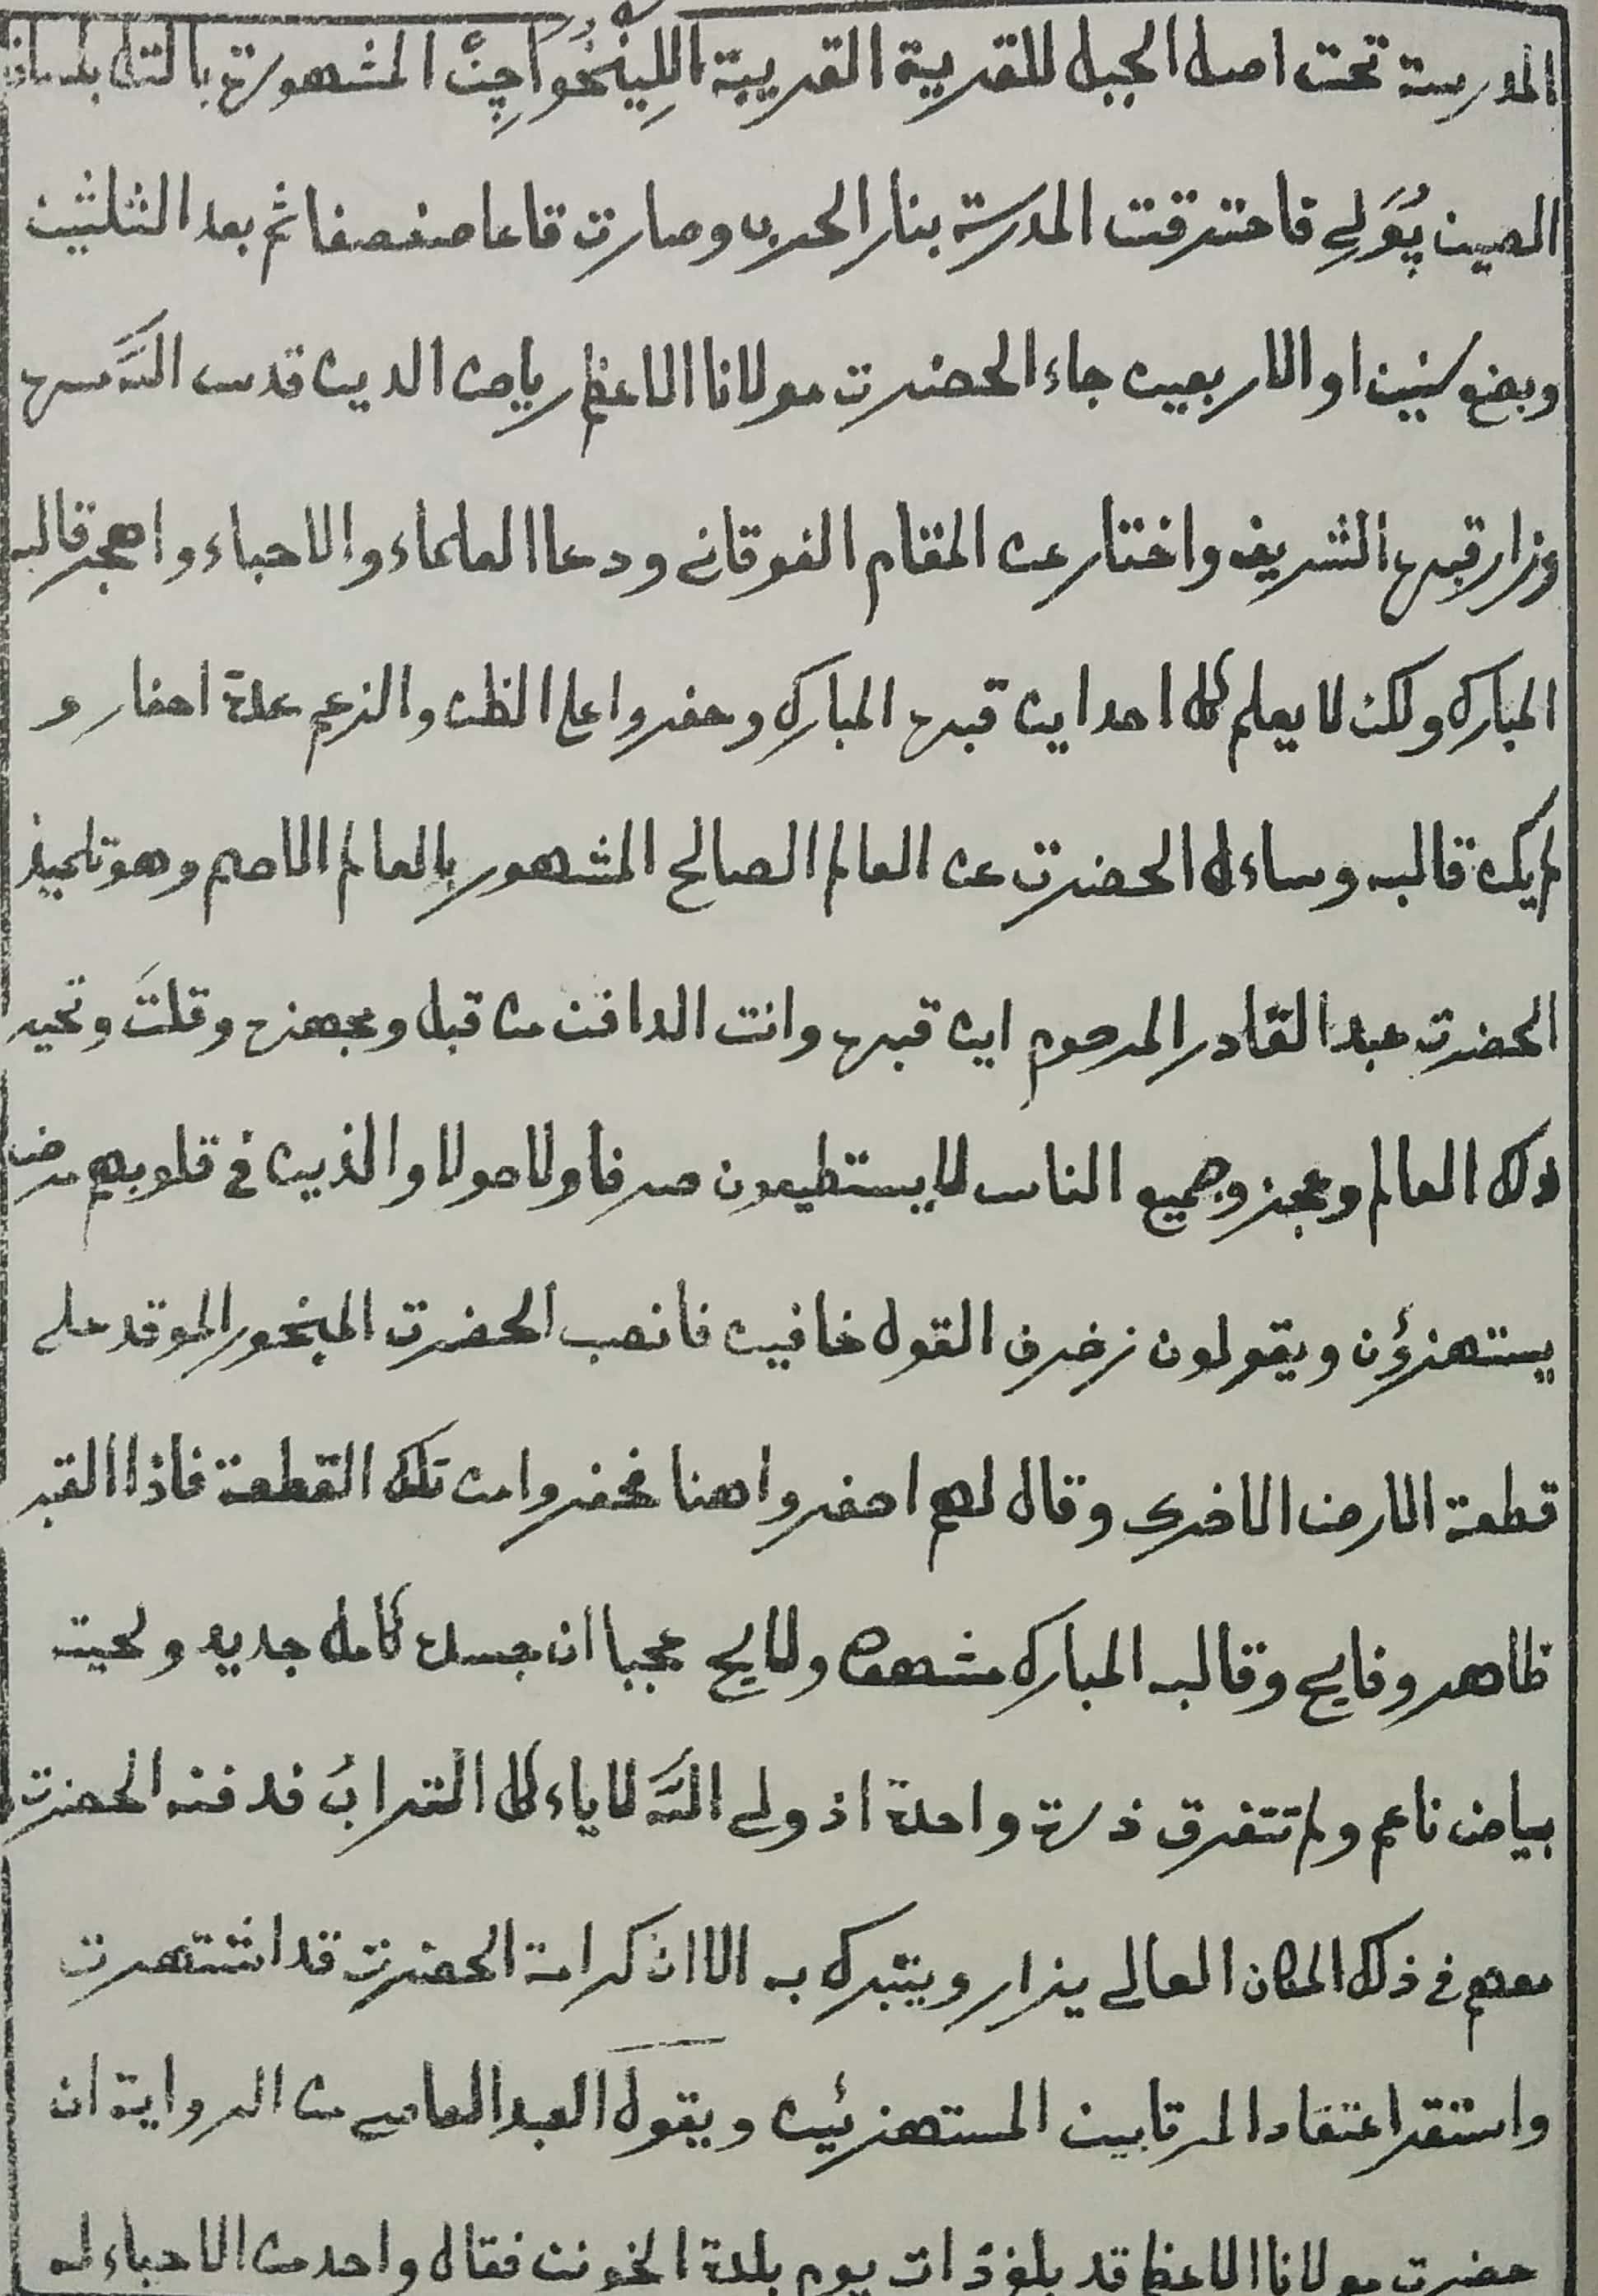 المدرسة تحت اصل الجبل للقرية القريبة اللِينْخُوَاچِنْ المشهورة بالتل بلسان
الصين پُوَلِے فاحترقت المدرسة بنار الحرب وصارت قاعا صفصفا ثم بعد الثلثين
وبضع سنين او الاربعين جاء الحضرت مولانا الاعظم رياض الدين قدس اللّٰه سره
وزار قبره الشريف واختار عن المقام الفوقانے ودعا العلماء والاحباء واهجر قالبه
المبارك ولكن لا يعلم كل احد اين قبره المبارك وحفروا على الظن والزعم عدة احفار و
لم يكن قالبه وساءل الحضرت عن العالم الصالح المشهور بالعالم الاصم وهو تلميذ
الحضرت عبد القادر المرحوم اين قبره وانت الدافن من قبل ومجهزه وقلتَ وتحير
ذلك العالم وعجز وجميع الناس لا يستطيعون صرفا ولا حولا والذين في قلوبهم مرض
يستهزؤن ويقولون زخرف القول خافين فانصب الحضرت البخور الموقد على
قطعة الارض الاخرى وقال لهم احفروا هنا فحفروا من تلك القطعة فاذا القبر
ظاهر وفايح وقالبه المبارك مشهود ولايح عجبا ان جسده كامل جديد ولحيته
بياض ناعم ولم تتفرق ذرة واحدة اذ ولے اللّٰه لا ياءكل الترابُ فدفنه الحضرت
معهم في ذلك المكان العالے يزار ويتبرك به الا ان كرامة الحضرت قد اشتهرت
واستقر اعتقاد المرتابين المستهزئين ويقول العبد العاصے من الرواية ان
حضرت مولانا الاعظم قد بلغ ذات يوم بلدة الخونن فقال واحد من الاحباء له